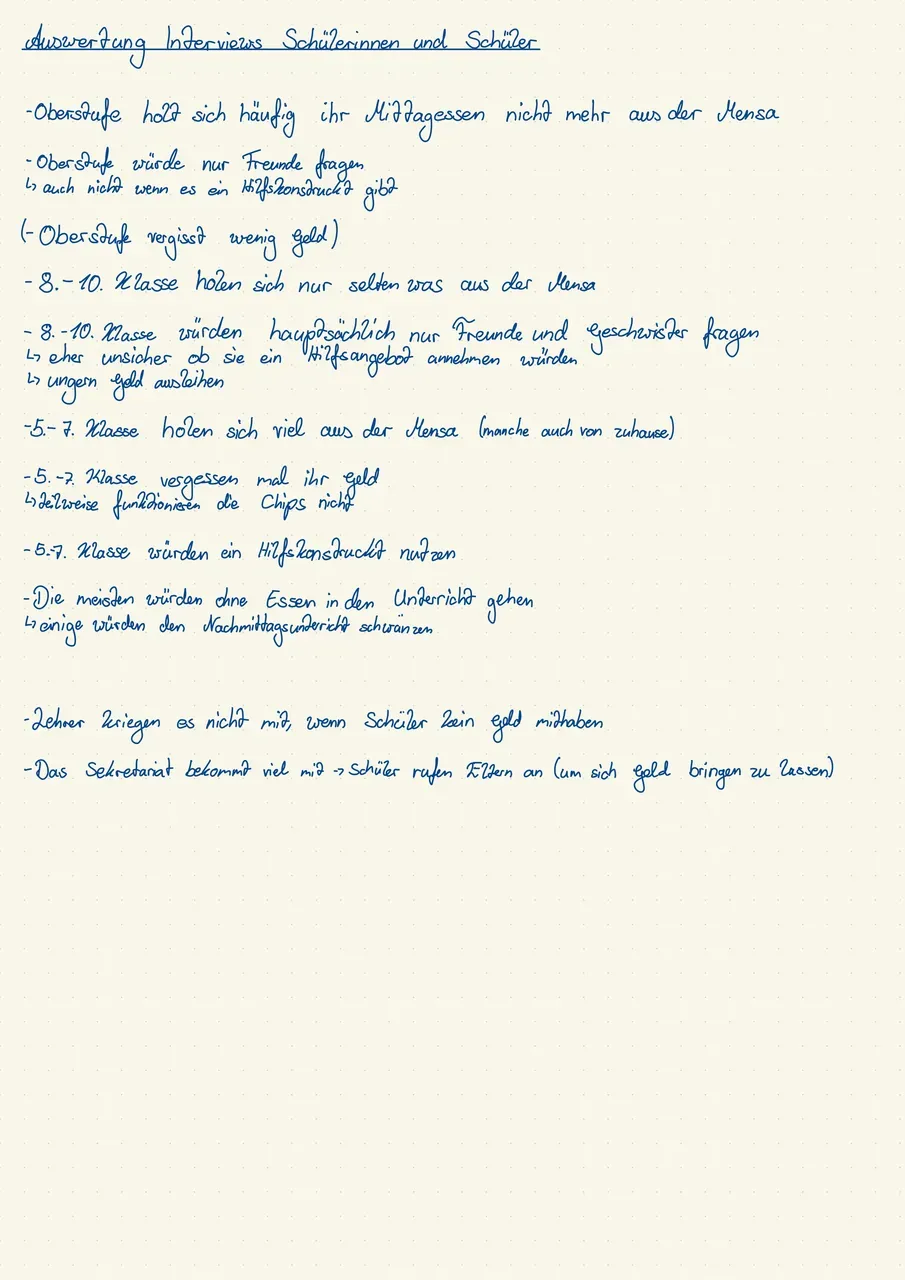 Auswertung Interviews Schülerinnen und Schüler
-Oberstufe holt sich häufig ihr Mittagessen nicht mehr aus der Mensa
- Oberstufe würde nur Freunde fragen
↳ auch nicht wenn es ein Hilfskonstruckt gibt
(- Oberstufe vergisst wenig Geld)
- 8.-10. Klasse holen sich nur selten was aus der Mensa
- 8.-10. Klasse würden hauptsächlich nur Freunde und Geschwister fragen
↳ eher unsicher ob sie ein Hilfsangebot annehmen würden
↳ ungern Geld ausleihen
-5.-7. Klasse holen sich viel aus der Mensa (manche auch von zuhause)
-5.-7. Klasse vergessen mal ihr Geld
↳ teilweise funktionieren die Chips nicht
-5.-7. Klasse würden ein Hilfskonstruckt nutzen
-Die meisten würden ohne Essen in den Unterricht gehen
↳ einige würden den Nachmittagsunterricht schwänzen
-Lehrer kriegen es nicht mit, wenn Schüler kein Geld mithaben
-Das Sekretariat bekommt viel mit → Schüler rufen Eltern an (um sich Geld bringen zu lassen)